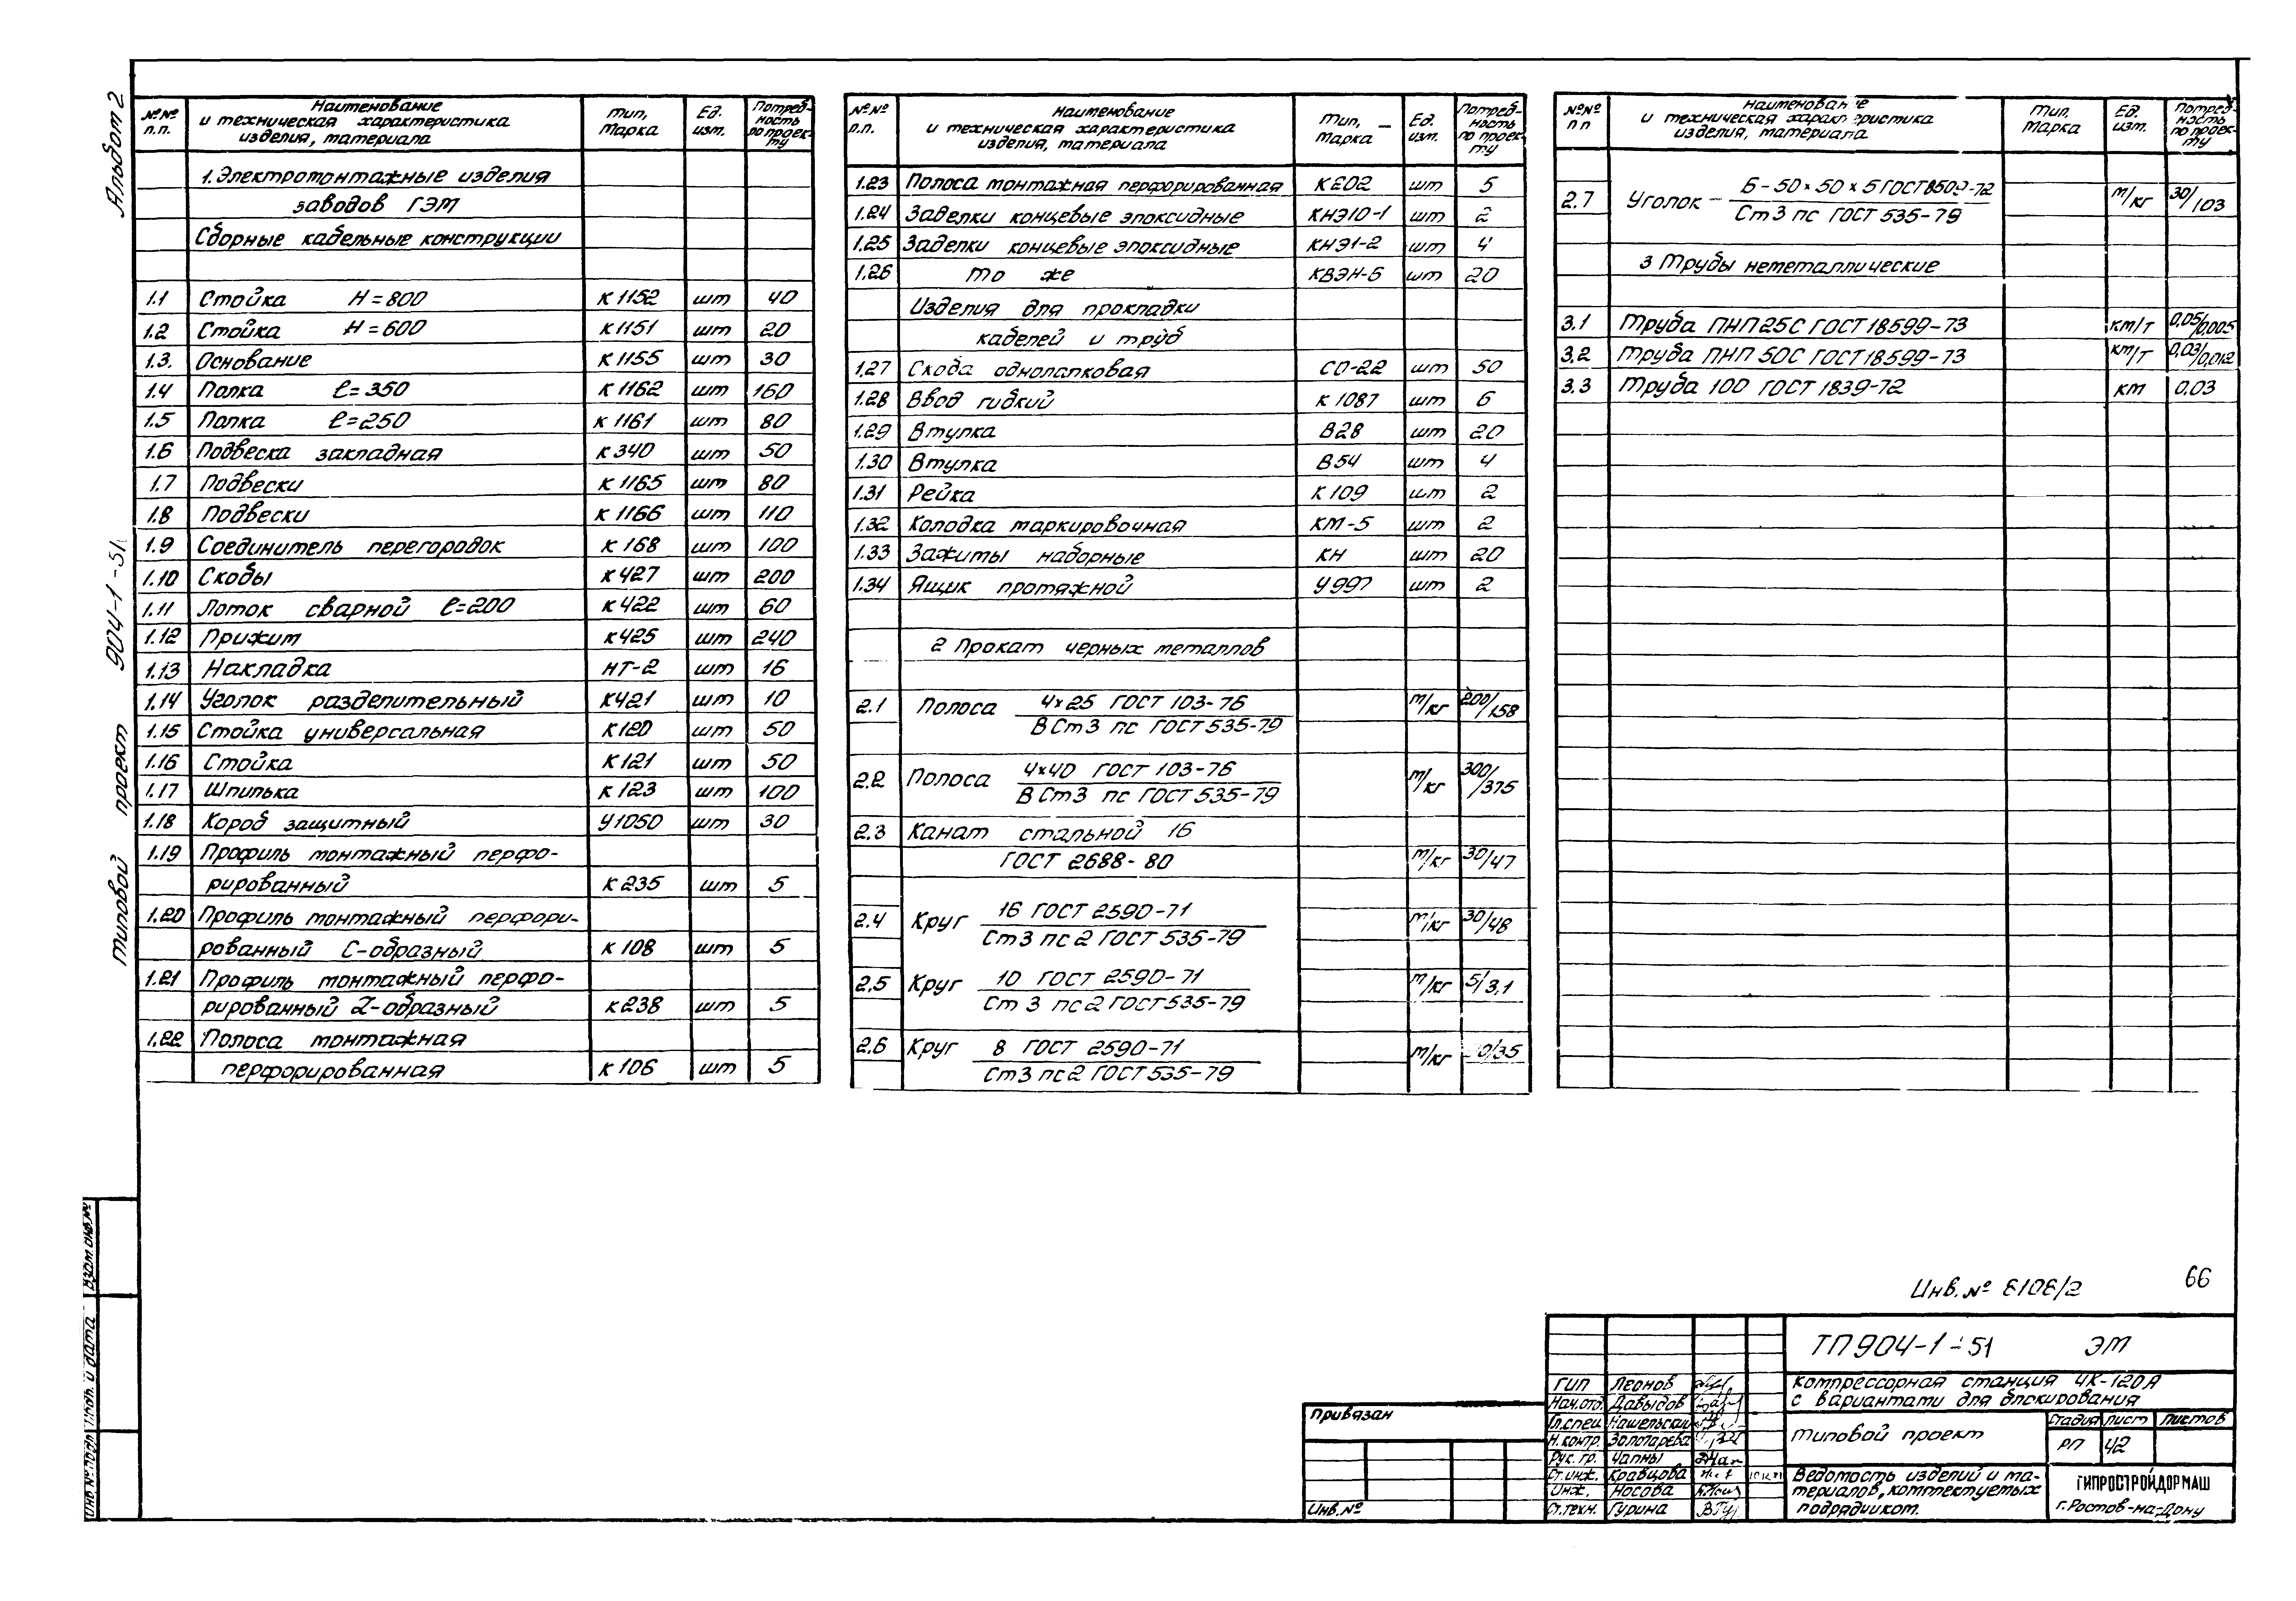 Альбом 2
Типовой проект 904-1-51
№№ п.п. | Наименование и техническая характеристика изделия, материала | Тип, марка | Ед. изм. | Потребность по проекту
1. Электромонтажные изделия
заводов ГЭМ
Сборные кабельные конструкции
1.1 Стойка H=800 К1152 шт 40
1.2 Стойка H=600 К1151 шт 20
1.3. Основание К1155 шт 30
1.4 Полка ℓ=350 К1162 шт 160
1.5 Полка ℓ=250 К1161 шт 80
1.6 Подвеска закладная К340 шт 50
1.7 Подвески К1165 шт 80
1.8 Подвески К1166 шт 110
1.9 Соединитель перегородок К168 шт 100
1.10 Скобы К427 шт 200
1.11 Лоток сварной ℓ=200 К422 шт 60
1.12 Прижим К425 шт 240
1.13 Накладка НТ-2 шт 16
1.14 Уголок разделительный К421 шт 10
1.15 Стойка универсальная К120 шт 50
1.16 Стойка К121 шт 50
1.17 Шпилька К123 шт 100
1.18 Короб защитный У1050 шт 30
1.19 Профиль монтажный перфо-
рированный К235 шт 5
1.20 Профиль монтажный перфори-
рованный С-образный К108 шт 5
1.21 Профиль монтажный перфо-
рированный Z-образный К238 шт 5
1.22 Полоса монтажная
перфорированная К106 шт 5
№№ п.п. | Наименование и техническая характеристика изделия, материала | Тип, марка | Ед. изм. | Потребность по проекту
1.23 Полоса монтажная перфорированная К202 шт 5
1.24 Заделки концевые эпоксидные КНЭ10-1 шт 2
1.25 Заделки концевые эпоксидные КНЭ1-2 шт 4
1.26 То же КВЭН-6 шт 20
Изделия для прокладки
кабелей и труб
1.27 Скоба однолапковая СО-22 шт 50
1.28 Ввод гибкий К1087 шт 6
1.29 Втулка В28 шт 20
1.30 Втулка В54 шт 4
1.31 Рейка К109 шт 2
1.32 Колодка маркировочная КМ-5 шт 2
1.33 Зажимы наборные КН шт 20
1.34 Ящик протяжной У997 шт 2
2 Прокат черных металлов
2.1 Полоса 4х25 ГОСТ 103-76 м/кг 200/158
В Ст3 пс ГОСТ 535-79
2.2 Полоса 4х40 ГОСТ 103-76 м/кг 300/375
В Ст3 пс ГОСТ 535-79
2.3 Канат стальной 16
ГОСТ 2688-80 м/кг 30/47
2.4 Круг 16 ГОСТ 2590-71 м/кг 30/48
Ст3 пс2 ГОСТ 535-79
2.5 Круг 10 ГОСТ 2590-71 м/кг 5/3,1
Ст 3 пс2 ГОСТ 535-79
2.6 Круг 8 ГОСТ 2590-71 м/кг
Ст3 пс2 ГОСТ 535-79
№№ п п | Наименование и техническая характеристика изделия, материала | Тип, марка | Ед. изм. | Потребность по проекту
2.7 Уголок Б-50х50х5 ГОСТ 8509-72 м/кг 30/103
Ст 3 пс ГОСТ 535-79
3 Трубы неметаллические
3.1 Труба ПНП 25С ГОСТ 18599-73 км/т 0,05/0,005
3.2 Труба ПНП 50С ГОСТ 18599-73 км/т 0,03/0,012
3.3 Труба 100 ГОСТ 1839-72 км 0.03
Инв. № подл. Подп. и дата Взам. инв. №
Инв. № 8108/2 66
Привязан
Инв. №
ГИП Леонов
Нач.отд. Давыдов
Гл.спец.
Н. контр. Золотарева
Рук. гр. Чапны
Ст. инж. Кравцова
Инж. Носова
Ст. техн. Гурина
ТП 904-1-51 ЭМ
Компрессорная станция 4К-120А
с вариантами для блокирования
Типовой проект
Стадия Лист Листов
РП 42
Ведомость изделий и ма-
териалов, комплектуемых
подрядчиком.
ГИПРОСТРОЙДОРМАШ
г. Ростов-на-Дону